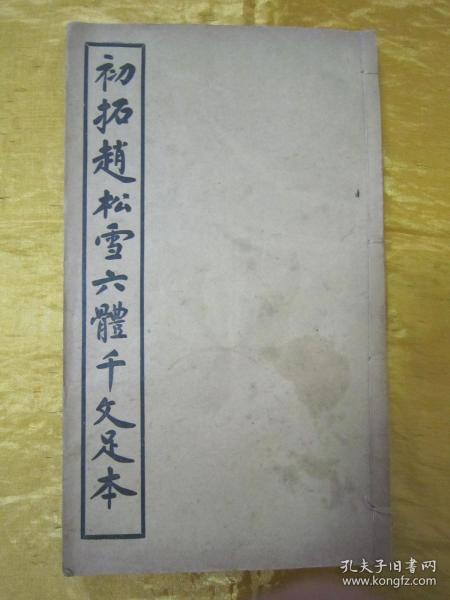 初拓趙松雪六體千文足本
孔夫子旧书网
www.kongfz.com